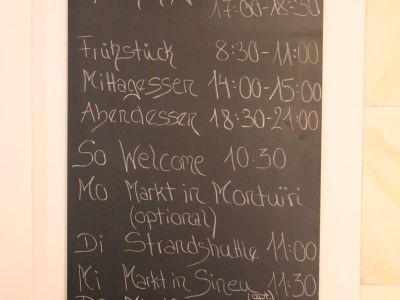 17:00-18:30
Frühstück 8:30-11:00
Mittagessen 14:00-15:00
Abendessen 18:30-21:00
So Welcome 10:30
Mo Markt in Montuïri
(optional)
Di Strandshuttle 11:00
Mi Markt in Sineu 11:30